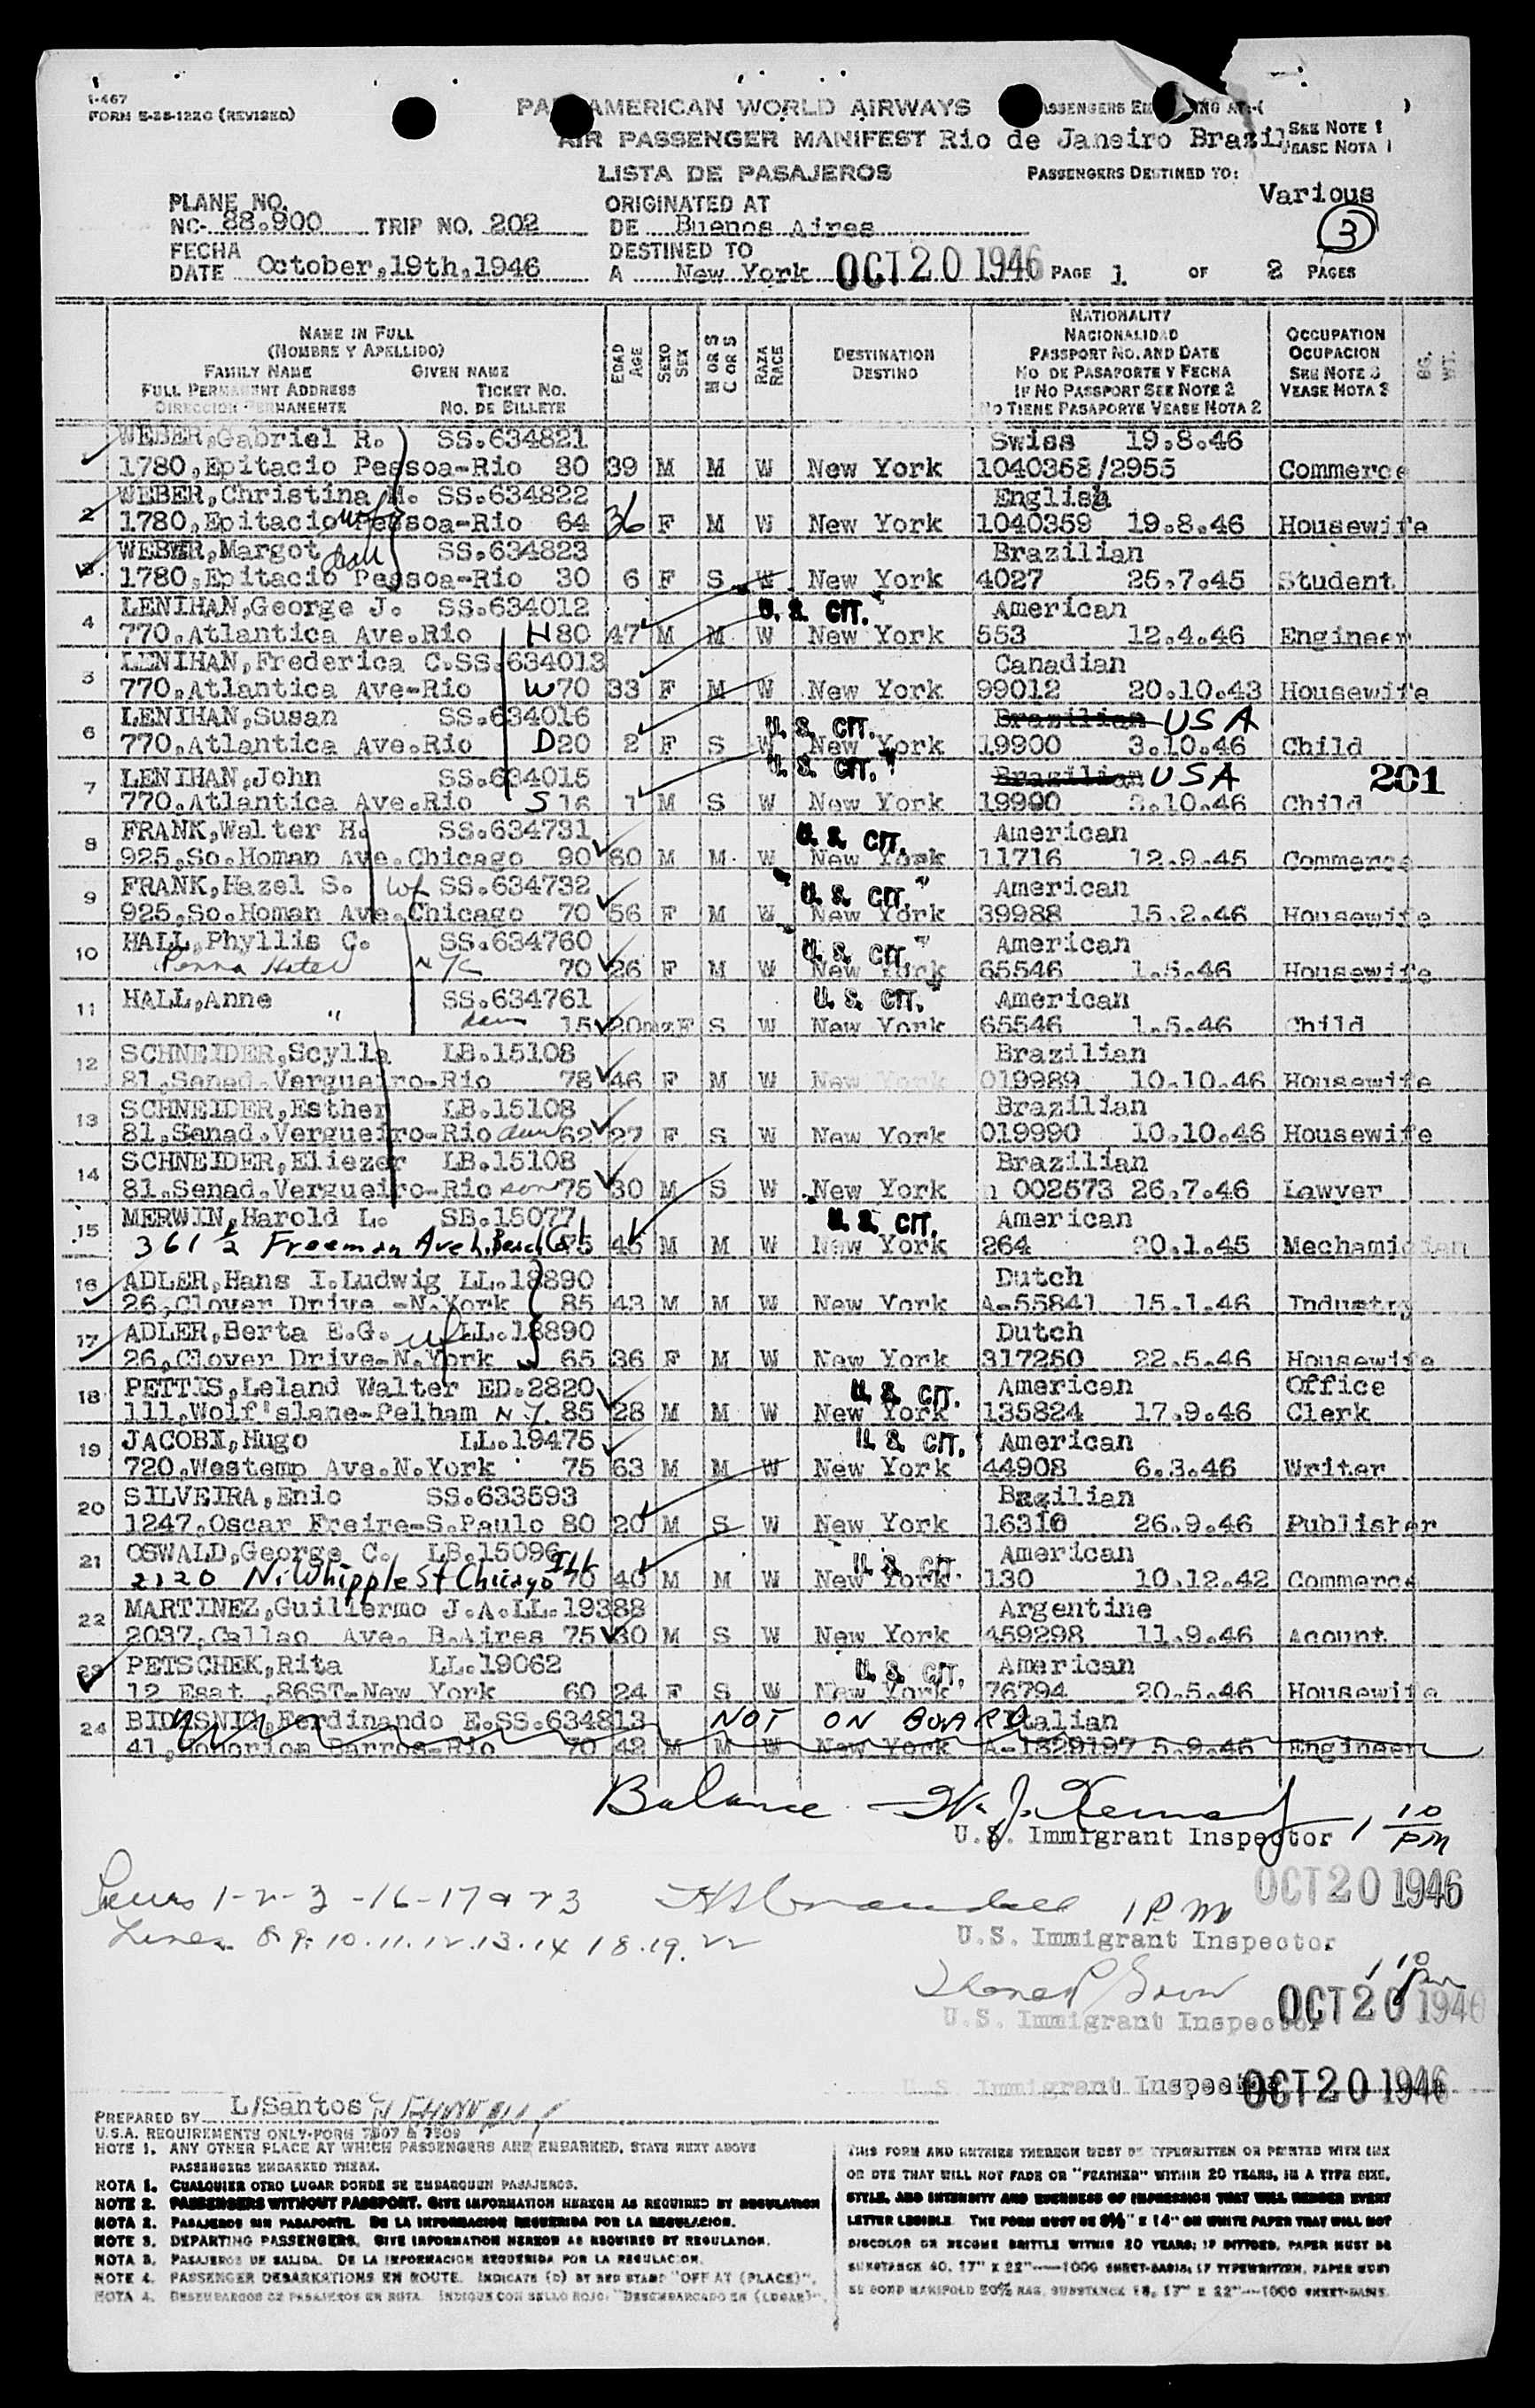 I-467
FORM E-28-122C (REVISED)
PAN AMERICAN WORLD AIRWAYS
AIR PASSENGER MANIFEST Rio de Janeiro Brazil
SEE NOTE 1
VEASE NOTA 1
LISTA DE PASAJEROS
PASSENGERS DESTINED TO:
Various
3
PLANE NO.
NC- 88.900 TRIP NO. 202
ORIGINATED AT
DE Buenos Aires
FECHA
DATE October,19th,1946
DESTINED TO
A New York OCT 20 1946 PAGE 1 OF 2 PAGES
NAME IN FULL
(NOMBRE Y APELLIDO)
FAMILY NAME GIVEN NAME
FULL PERMANENT ADDRESS TICKET NO.
DIRECCION PERMANENTE NO. DE BILLETE
EDAD AGE
SEXO SEX
M OR S C OR S
RAZA RACE
DESTINATION
DESTINO
NATIONALITY
NACIONALIDAD
PASSPORT NO. AND DATE
NO DE PASAPORTE Y FECHA
IF NO PASSPORT SEE NOTE 2
NO TIENE PASAPORTE VEASE NOTA 2
OCCUPATION
OCUPACION
SEE NOTE 3
VEASE NOTA 3
BG. WT.
WEBER,Gabriel R. SS.634821 Swiss 19.8.46
1780,Epitacio Pessoa-Rio 80 39 M M W New York 1040368/2955 Commerce
WEBER,Christina M. SS.634822 English
2 1780,Epitacio Pessoa-Rio wf 64 36 F M W New York 1040359 19.8.46 Housewife
WEBER,Margot SS.634823 Brazilian
3. 1780,Epitacio Pessoa-Rio dau 30 6 F S W New York 4027 25.7.45 Student
4 LENIHAN,George J. SS.634012 U. S. CIT. American
770,Atlantica Ave.Rio H 80 47 M M W New York 553 12.4.46 Engineer
5 LENIHAN,Frederica C.SS.634013 Canadian
770,Atlantica Ave-Rio W 70 33 F M W New York 99012 20.10.43 Housewife
6 LENIHAN,Susan SS.634016 U. S. CIT. Brazilian USA
770,Atlantica Ave.Rio D 20 2 F S W New York 19900 3.10.46 Child
7 LENIHAN,John SS.634015 U. S. CIT. Brazilian USA 201
770,Atlantica Ave.Rio S 16 1 M S W New York 19990 3.10.46 Child
8 FRANK,Walter H. SS.634731 U. S. CIT. American
925,So.Homan Ave.Chicago 90 60 M M W New York 11716 12.9.45 Commerce
9 FRANK,Hazel S. wf SS.634732 U. S. CIT. American
925,So.Homan Ave.Chicago 70 56 F M W New York 39988 15.2.46 Housewife
10 HALL,Phyllis C. SS.634760 U. S. CIT. American
Penna Hotel NYC 70 26 F M W New York 65546 1.5.46 Housewife
11 HALL,Anne SS.634761 U. S. CIT. American
" dau 15 20mz F S W New York 65546 1.5.46 Child
12 SCHNEIDER,Scylla LB.15108 Brazilian
81,Senad.Vergueiro-Rio 78 46 F M W New York 019989 10.10.46 Housewife
13 SCHNEIDER,Esther LB.15108 Brazilian
81,Senad.Vergueiro-Rio dau 62 27 F S W New York 019990 10.10.46 Housewife
14 SCHNEIDER,Eliezer LB.15108 Brazilian
81,Senad.Vergueiro-Rio son 75 30 M S W New York 002573 26.7.46 Lawyer
15 MERWIN,Harold L. SB.15077 U. S. CIT. American
361 1/2 Freeman Ave L.Beach Cal 75 45 M M W New York 264 20.1.45 Mechamician
16 ADLER,Hans I.Ludwig LL.18890 Dutch
26,Clover Drive -N.York 85 43 M M W New York A-55841 15.1.46 Industry
17 ADLER,Berta E.G. wf LL.18890 Dutch
26,Clover Drive-N.York 65 36 F M W New York 317250 22.5.46 Housewife
18 PETTIS,Leland Walter ED.2820 U. S. CIT. American Office
111,Wolf'slane-Pelham N.Y. 85 28 M M W New York 135824 17.9.46 Clerk
19 JACOBI,Hugo LL.19475 U. S. CIT. American
720,Westemp Ave.N.York 75 63 M M W New York 44908 6.3.46 Writer
20 SILVEIRA,Enio SS.633593 Bazilian
1247,Oscar Freire-S.Paulo 80 20 M S W New York 16310 26.9.46 Publisher
21 OSWALD,George C. LB.15096 U. S. CIT. American
2120 N. Whipple St Chicago Ill 70 40 M M W New York 130 10.12.42 Commerce
22 MARTINEZ,Guillermo J.A.LL.19388 Argentine
2037,Callao Ave. B.Aires 75 30 M S W New York 459298 11.9.46 Acount
23 PETSCHEK,Rita LL.19062 U. S. CIT. American
12 Esat ,86ST-New York 60 24 F S W New York 76794 20.5.46 Housewife
24 Ferdinando E.SS.634813 NOT ON BOARD Italian
41,Honoriom Barros-Rio 70 42 M M W New York A-1829197 5.9.46 Engineer
Balance
U.S. Immigrant Inspector 1 10 PM
OCT 20 1946
1-2-3-16-17 & 23 1 P M
U.S. Immigrant Inspector
Lines 8.9.10.11.12.13.14 18.19.22
1 10 pm
OCT 20 1946
U.S. Immigrant Inspector
U.S. Immigrant Inspector OCT 20 1946
PREPARED BY L/Santos
U.S.A. REQUIREMENTS ONLY-FORM 7507 & 7509
NOTE 1. ANY OTHER PLACE AT WHICH PASSENGERS ARE EMBARKED, STATE NEXT ABOVE
PASSENGERS EMBARKED THERE.
NOTA 1. CUALQUIER OTRO LUGAR DONDE SE EMBARQUEN PASAJEROS.
NOTE 2. PASSENGERS WITHOUT PASSPORT. GIVE INFORMATION HEREON AS REQUIRED BY REGULATION
NOTA 2. PASAJEROS SIN PASAPORTE. DE LA INFORMACION REQUERIDA POR LA REGULACION.
NOTE 3. DEPARTING PASSENGERS. GIVE INFORMATION HEREON AS REQUIRED BY REGULATION.
NOTA 3. PASAJEROS DE SALIDA. DE LA INFORMACION REQUERIDA POR LA REGULACION.
NOTE 4. PASSENGER DEBARKATIONS EN ROUTE. INDICATE (D) BY RED STAMP "OFF AT (PLACE)".
NOTA 4. DESEMBARCOS DE PASAJEROS EN RUTA. INDIQUE CON SELLO ROJO. "DESEMBARCADO EN (LUGAR)".
THIS FORM AND ENTRIES THEREON MUST BE TYPEWRITTEN OR PRINTED WITH INK
OR DYE THAT WILL NOT FADE OR "FEATHER" WITHIN 20 YEARS, IN A TYPE SIZE,
STYLE, AND INTENSITY AND EVENNESS OF IMPRESSION THAT WILL RENDER EVERY
LETTER LEGIBLE. THE FORM MUST BE 8½" X 14" ON WHITE PAPER THAT WILL NOT
DISCOLOR OR BECOME BRITTLE WITHIN 20 YEARS; IF DITTOED, PAPER MUST BE
SUBSTANCE 40, 17" X 22"—1000 SHEET-BASIS; IF TYPEWRITTEN, PAPER MUST
BE BOND MANIFOLD 50% RAG, SUBSTANCE 18, 17" X 22"—1000 SHEET-BASIS.